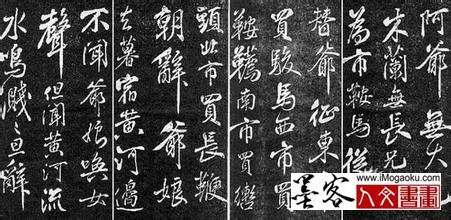 阿爺無大
木蘭無長兄
為市鞍馬從
替爺征東
買駿馬西市買
鞍韉南市買轡
頭北市買長鞭
朝辭爺娘
去暮宿黃河邊
不聞爺娘喚女
聲但聞黃河流
水鳴濺〻旦辭
www.iMogaoku.com
墨客
人文書畫